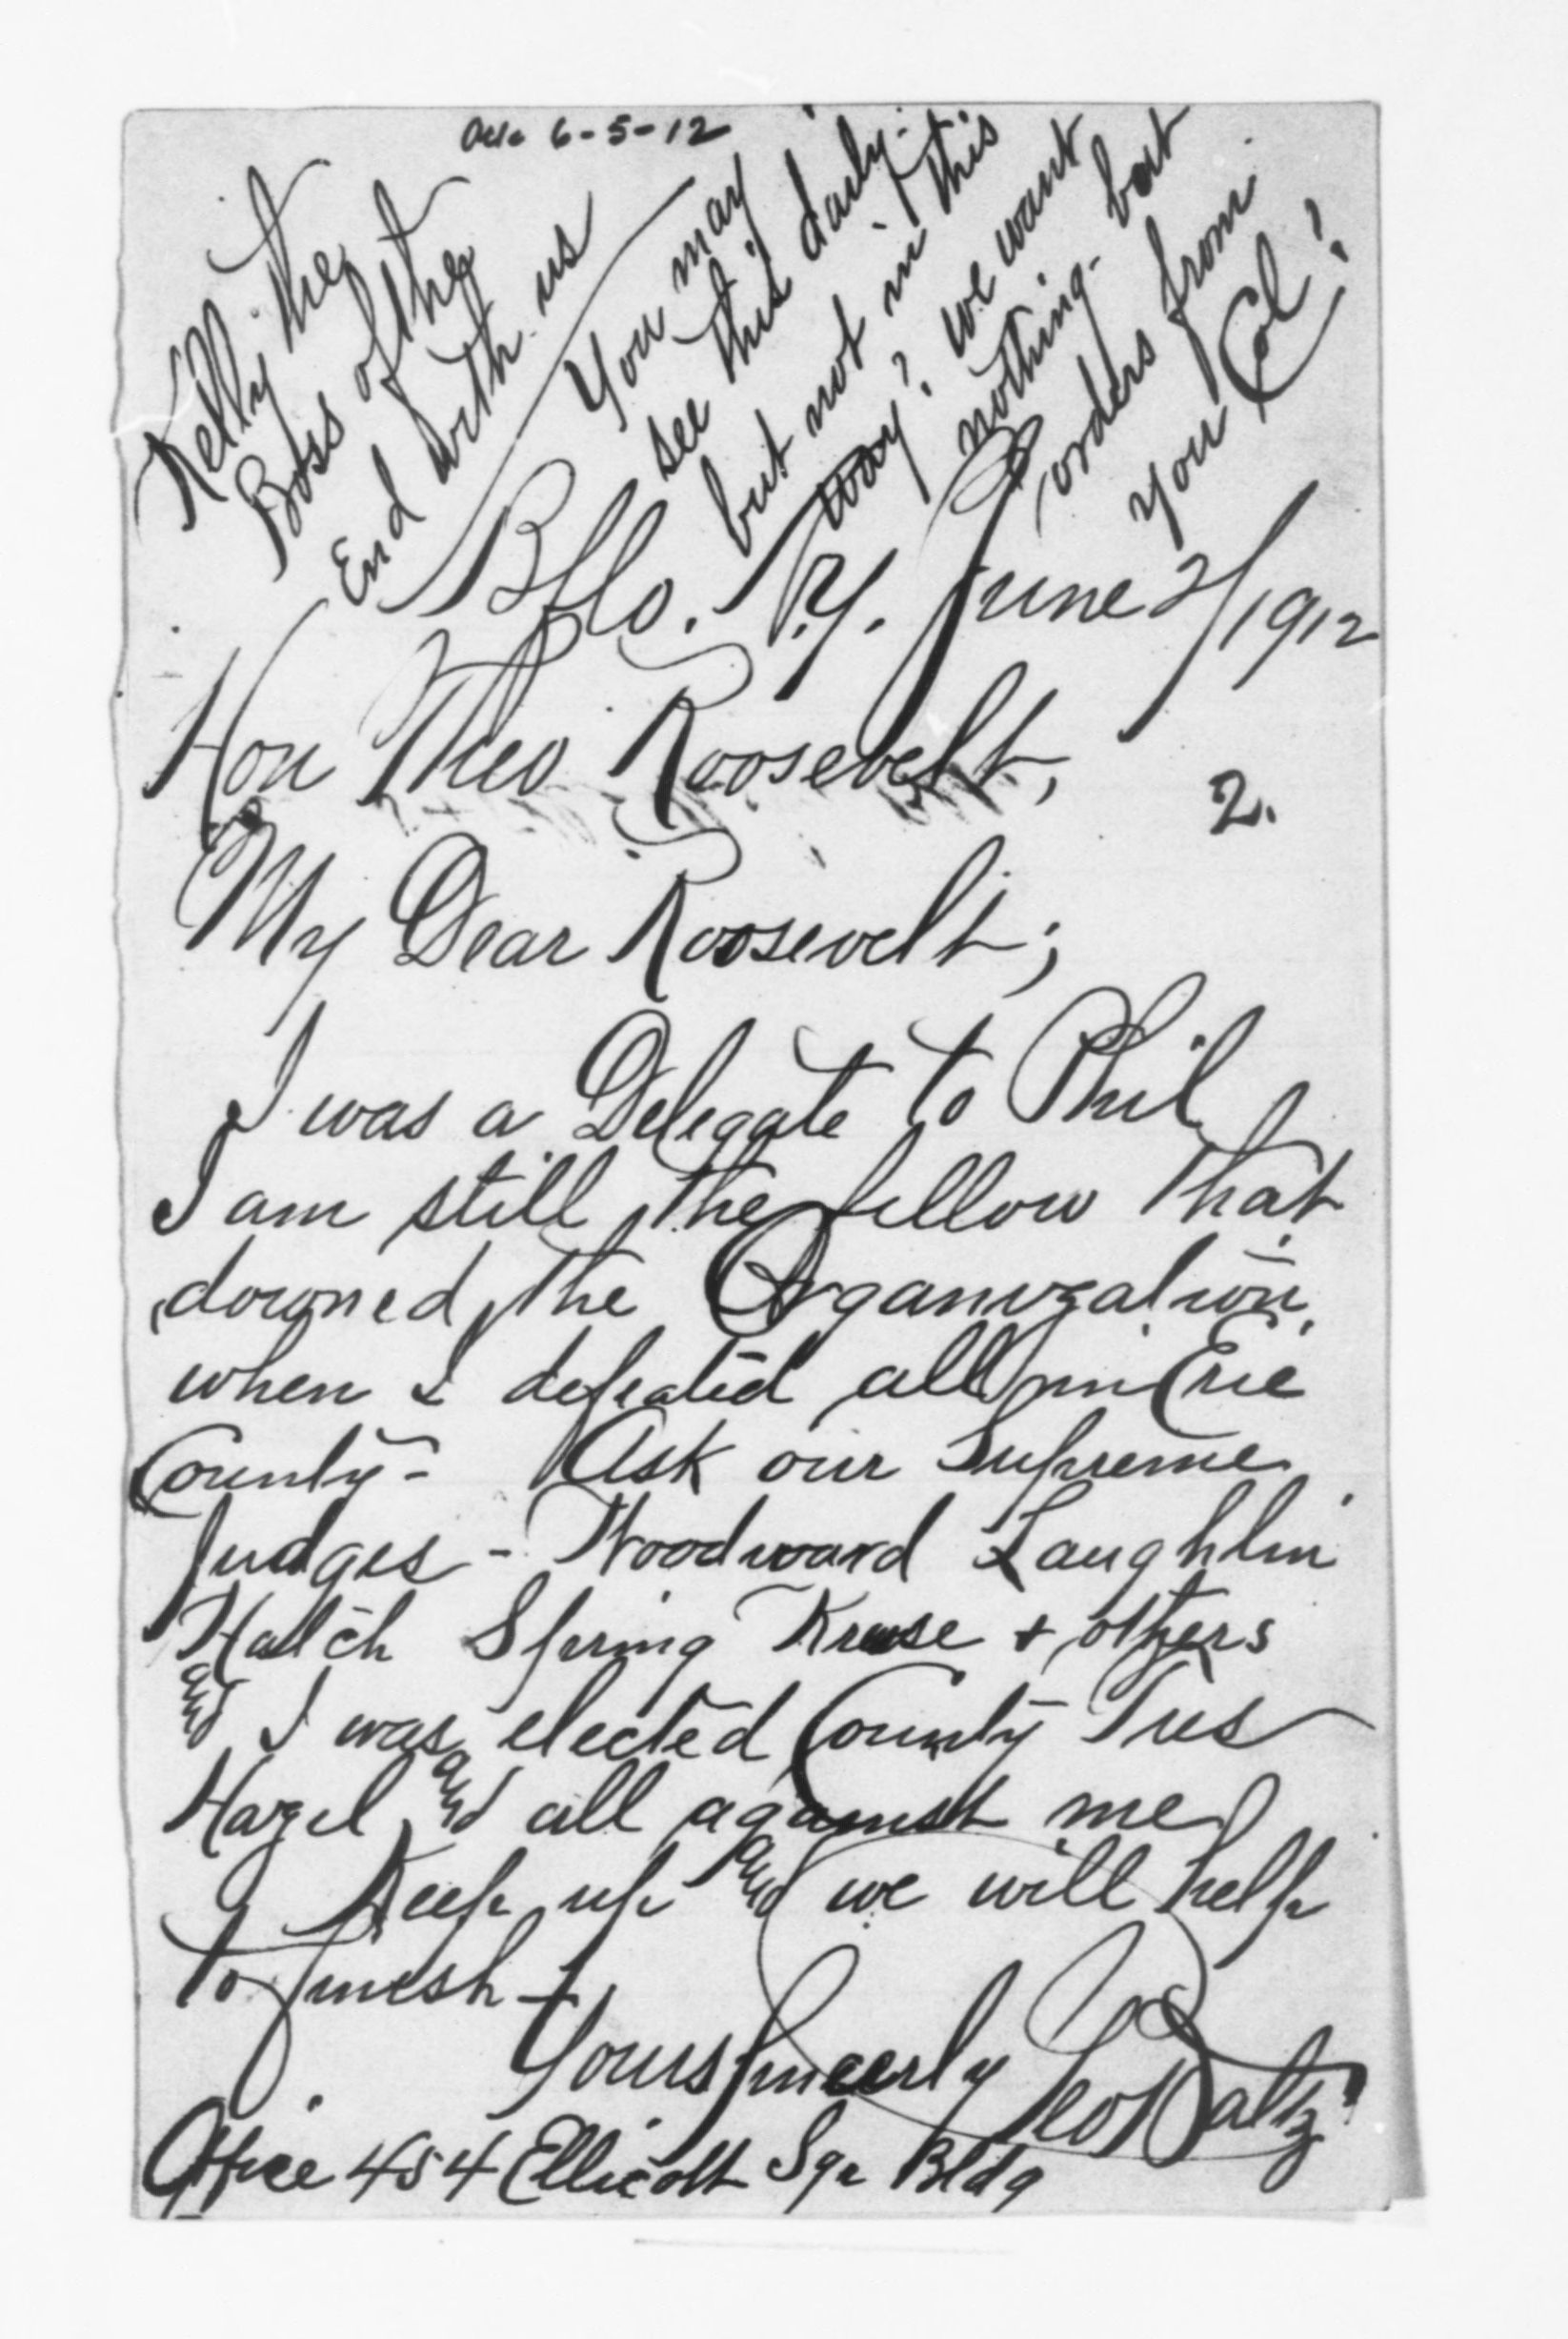 Ack 6-5-12
Kelly the
Boss of the
End with us
You may
see this daily.
but not in this
way? we want
nothing - but
orders from
you Col!
Bflo. N.Y. June 2/1912
Hon Theo Roosevelt,
2.
My Dear Roosevelt;
I was a Delegate to Phil
I am still the fellow that
downed the Organization,
when I defeated all in Erie
County - Ask our Supreme
Judges - Woodward Laughlin
Hatch Spring Kruse + others
and I was elected County Tres
Hazel and all against me
Keep up and we will help
to finish -
Yours Sincerely Geo Baltz
Office 454 Ellicott Sqr Bldg